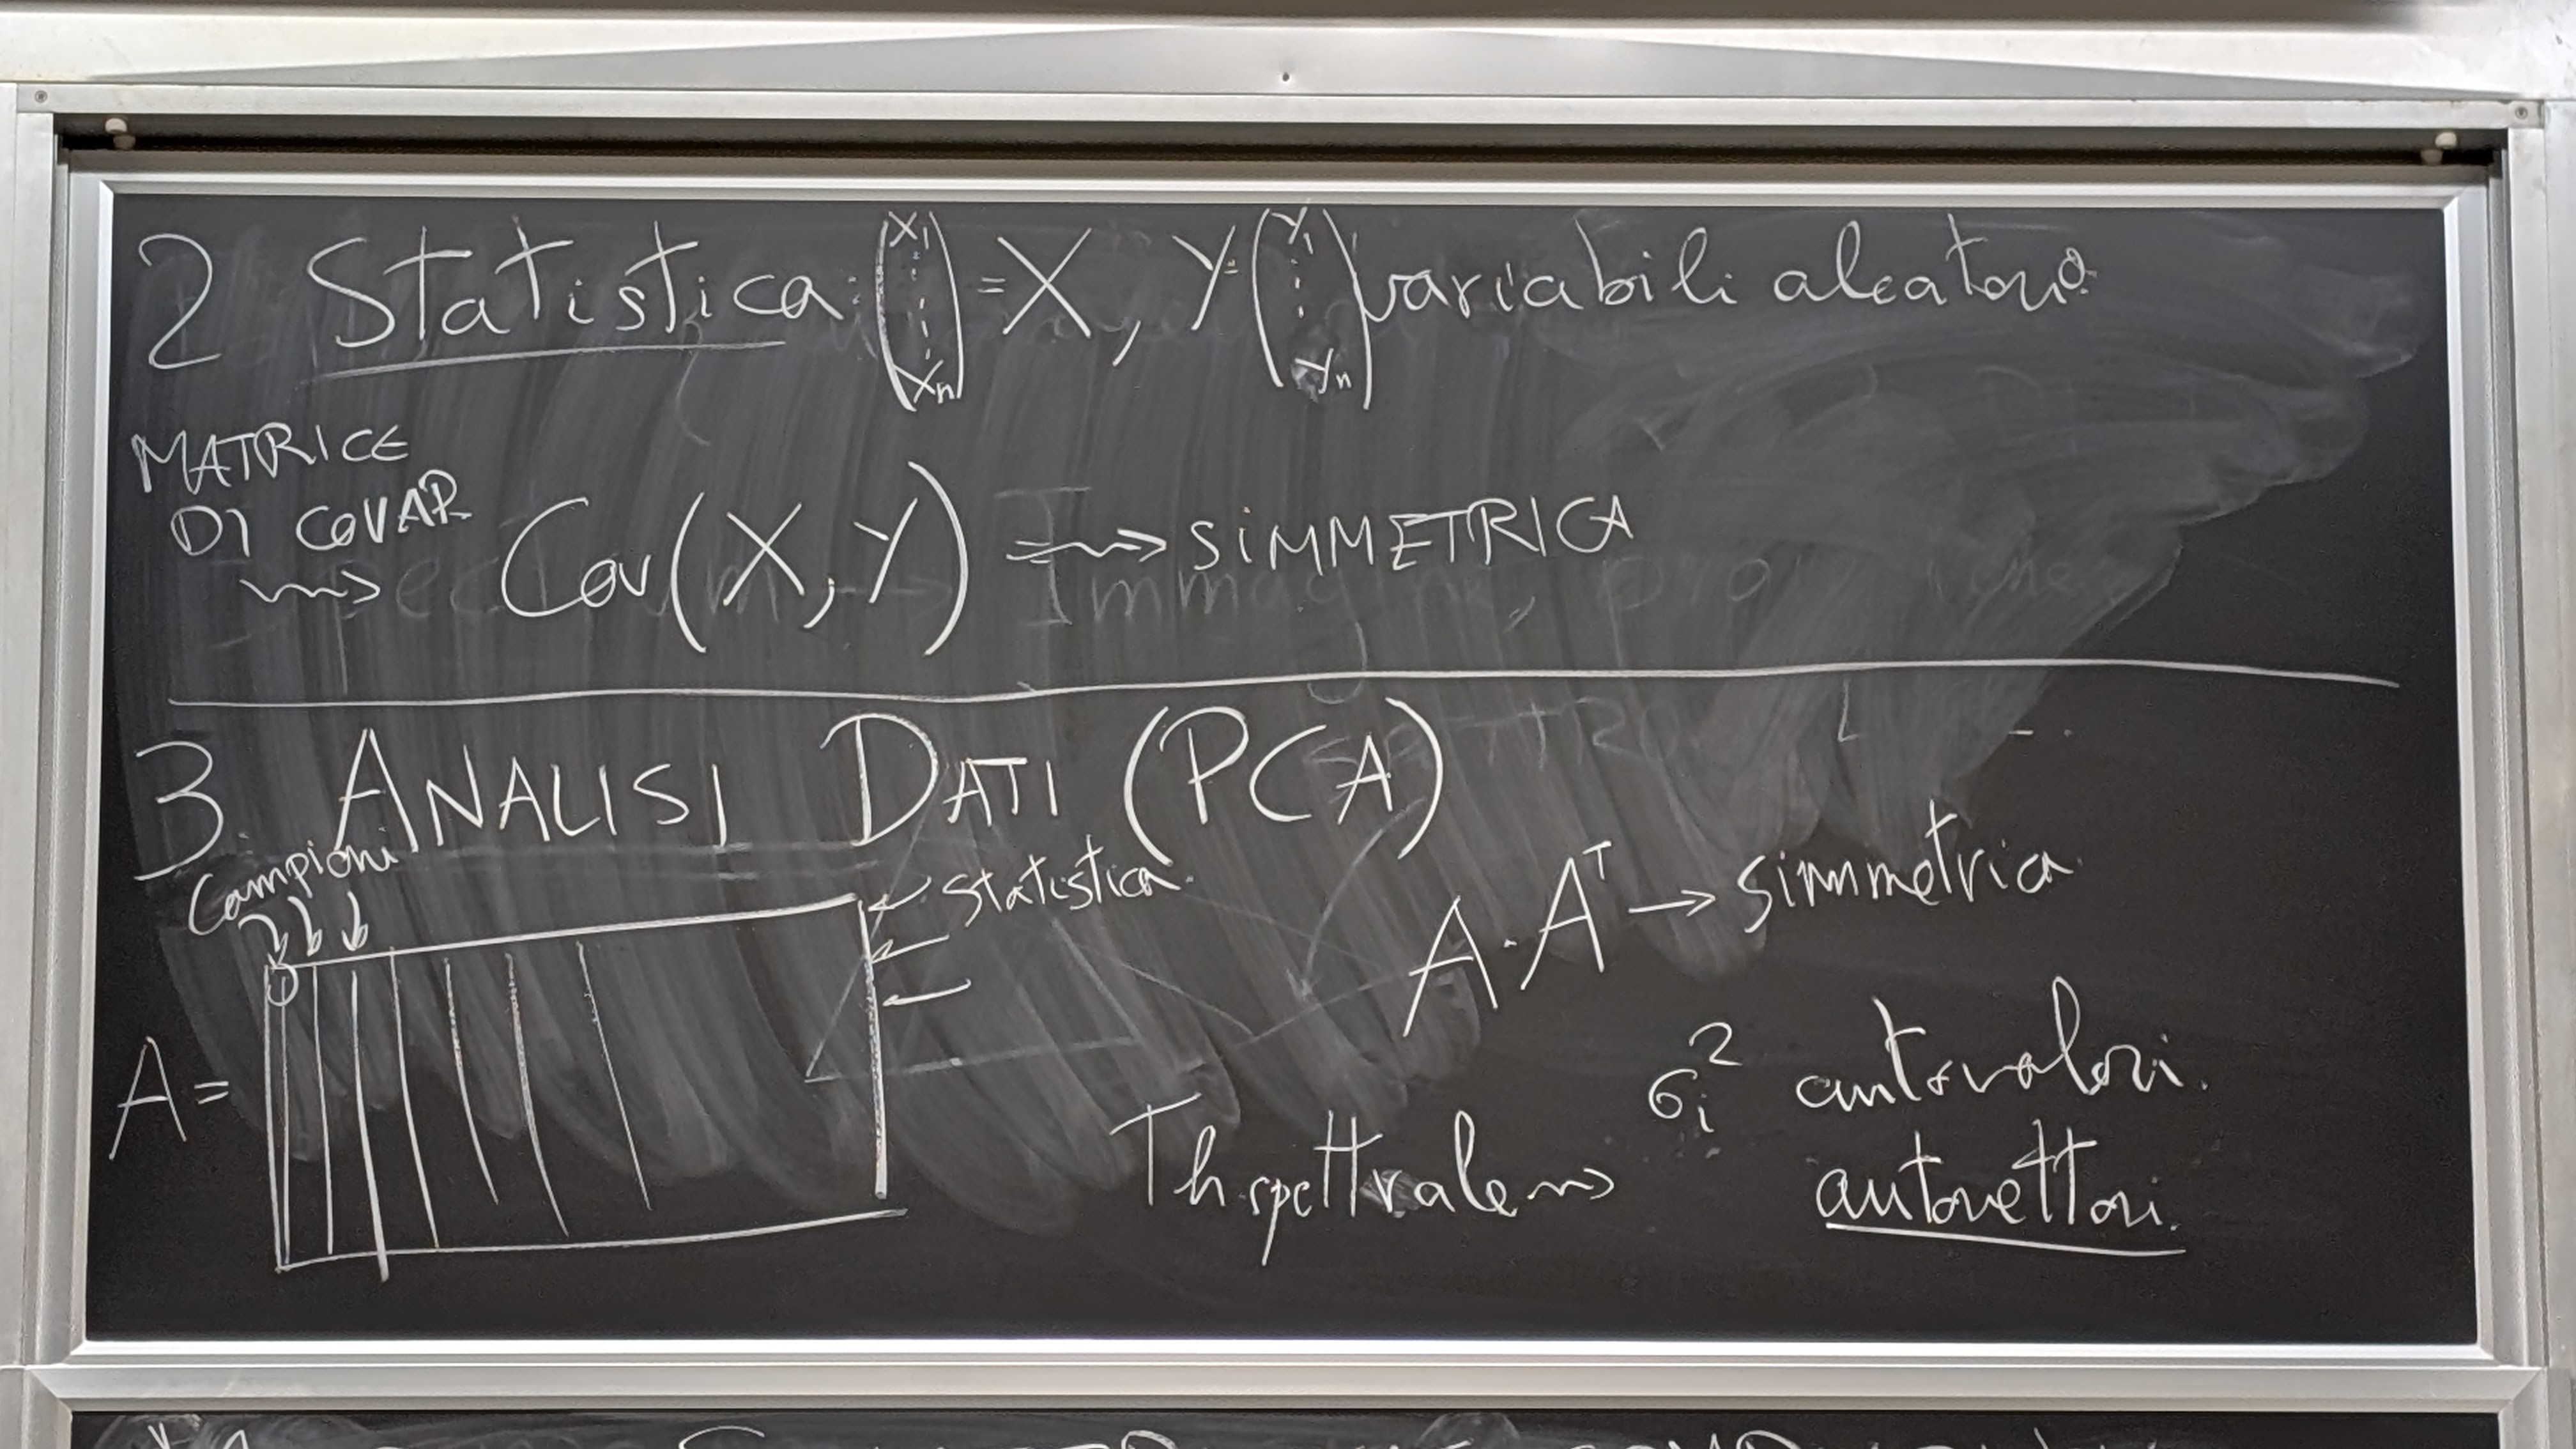 2 Statistica: (X1 ⋮ Xn) = X, Y = (Y1 ⋮ Yn) variabili aleatorie.
MATRICE
DI COVAR
⇝ Cov(X, Y) ⇝ SIMMETRICA
3. ANALISI DATI (PCA)
Campioni
← Statistica.
A =
A · Aᵀ → simmetrica
Th spettrale ⇝ σi² autovalori.
autovettori.